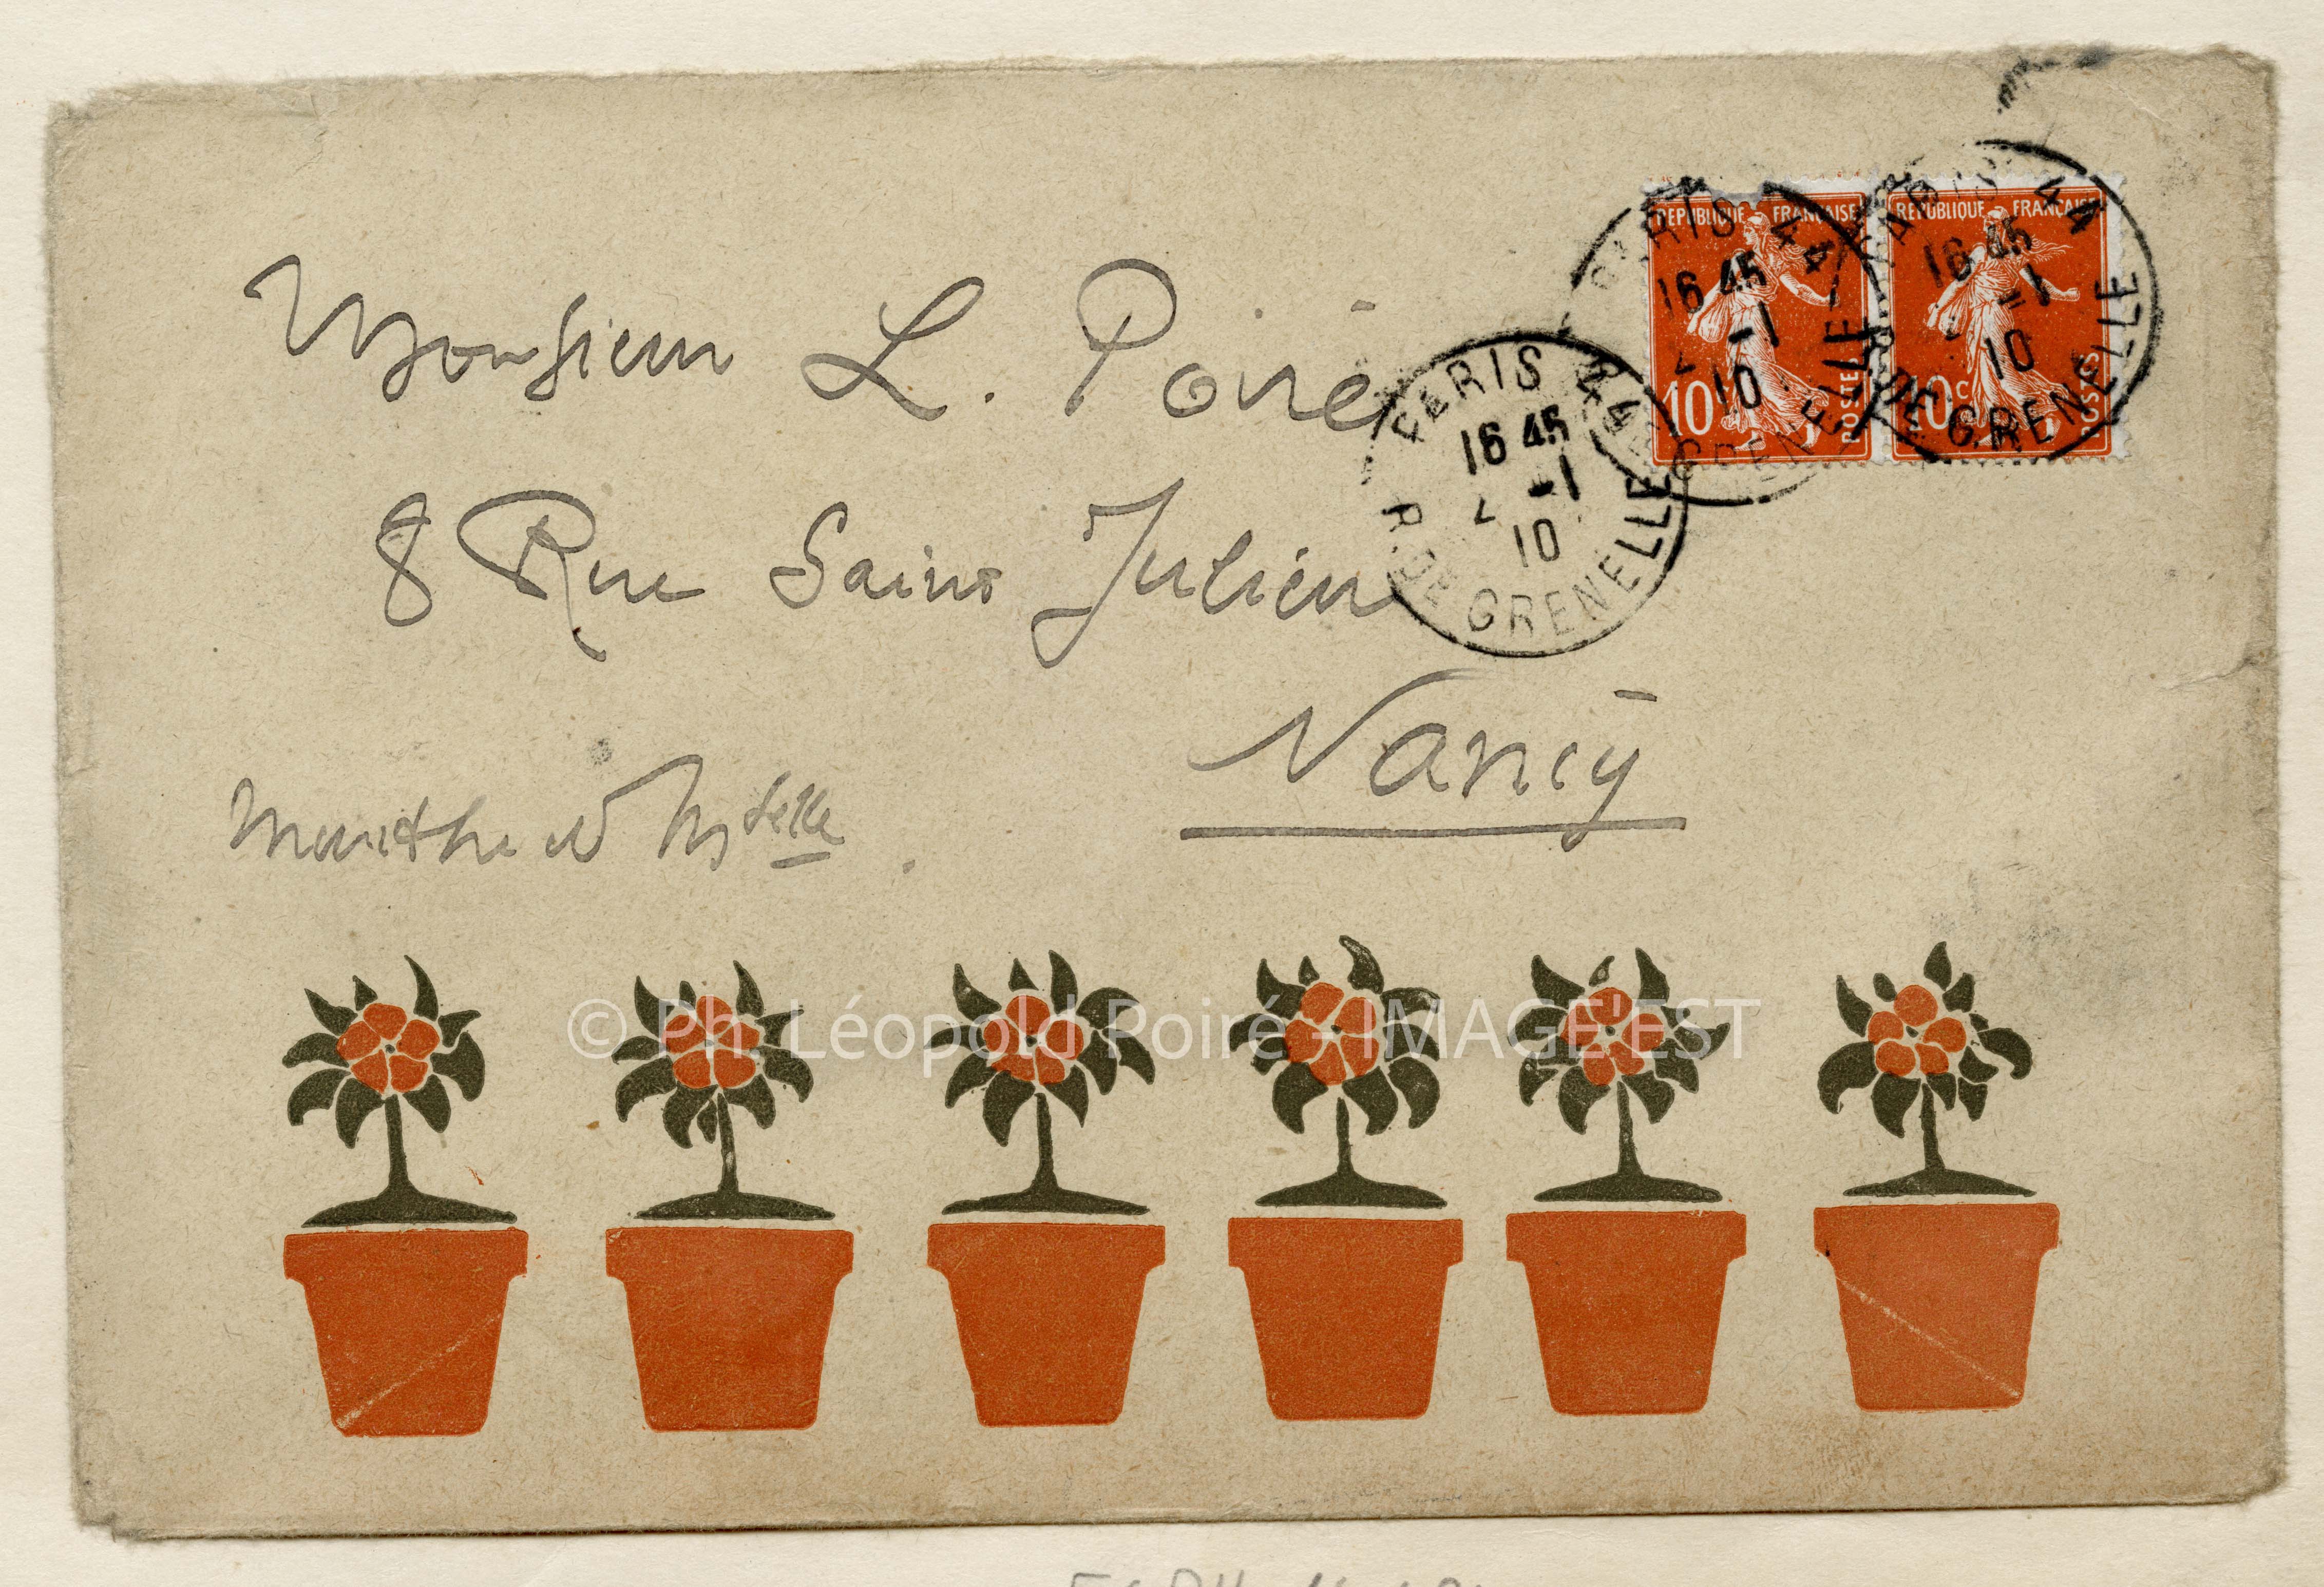 Monsieur L. Poiré
8 Rue Saint Julien
Nancy
REPUBLIQUE FRANÇAISE
10c
POSTES
REPUBLIQUE FRANÇAISE
10c
POSTES
PARIS 44
16 45
-1
10
R. DE GRENELLE
PARIS 44
16 45
-1
10
R. DE GRENELLE
PARIS 44
16 45
-1
10
R. DE GRENELLE
© Ph. Léopold Poiré - IMAGE'EST